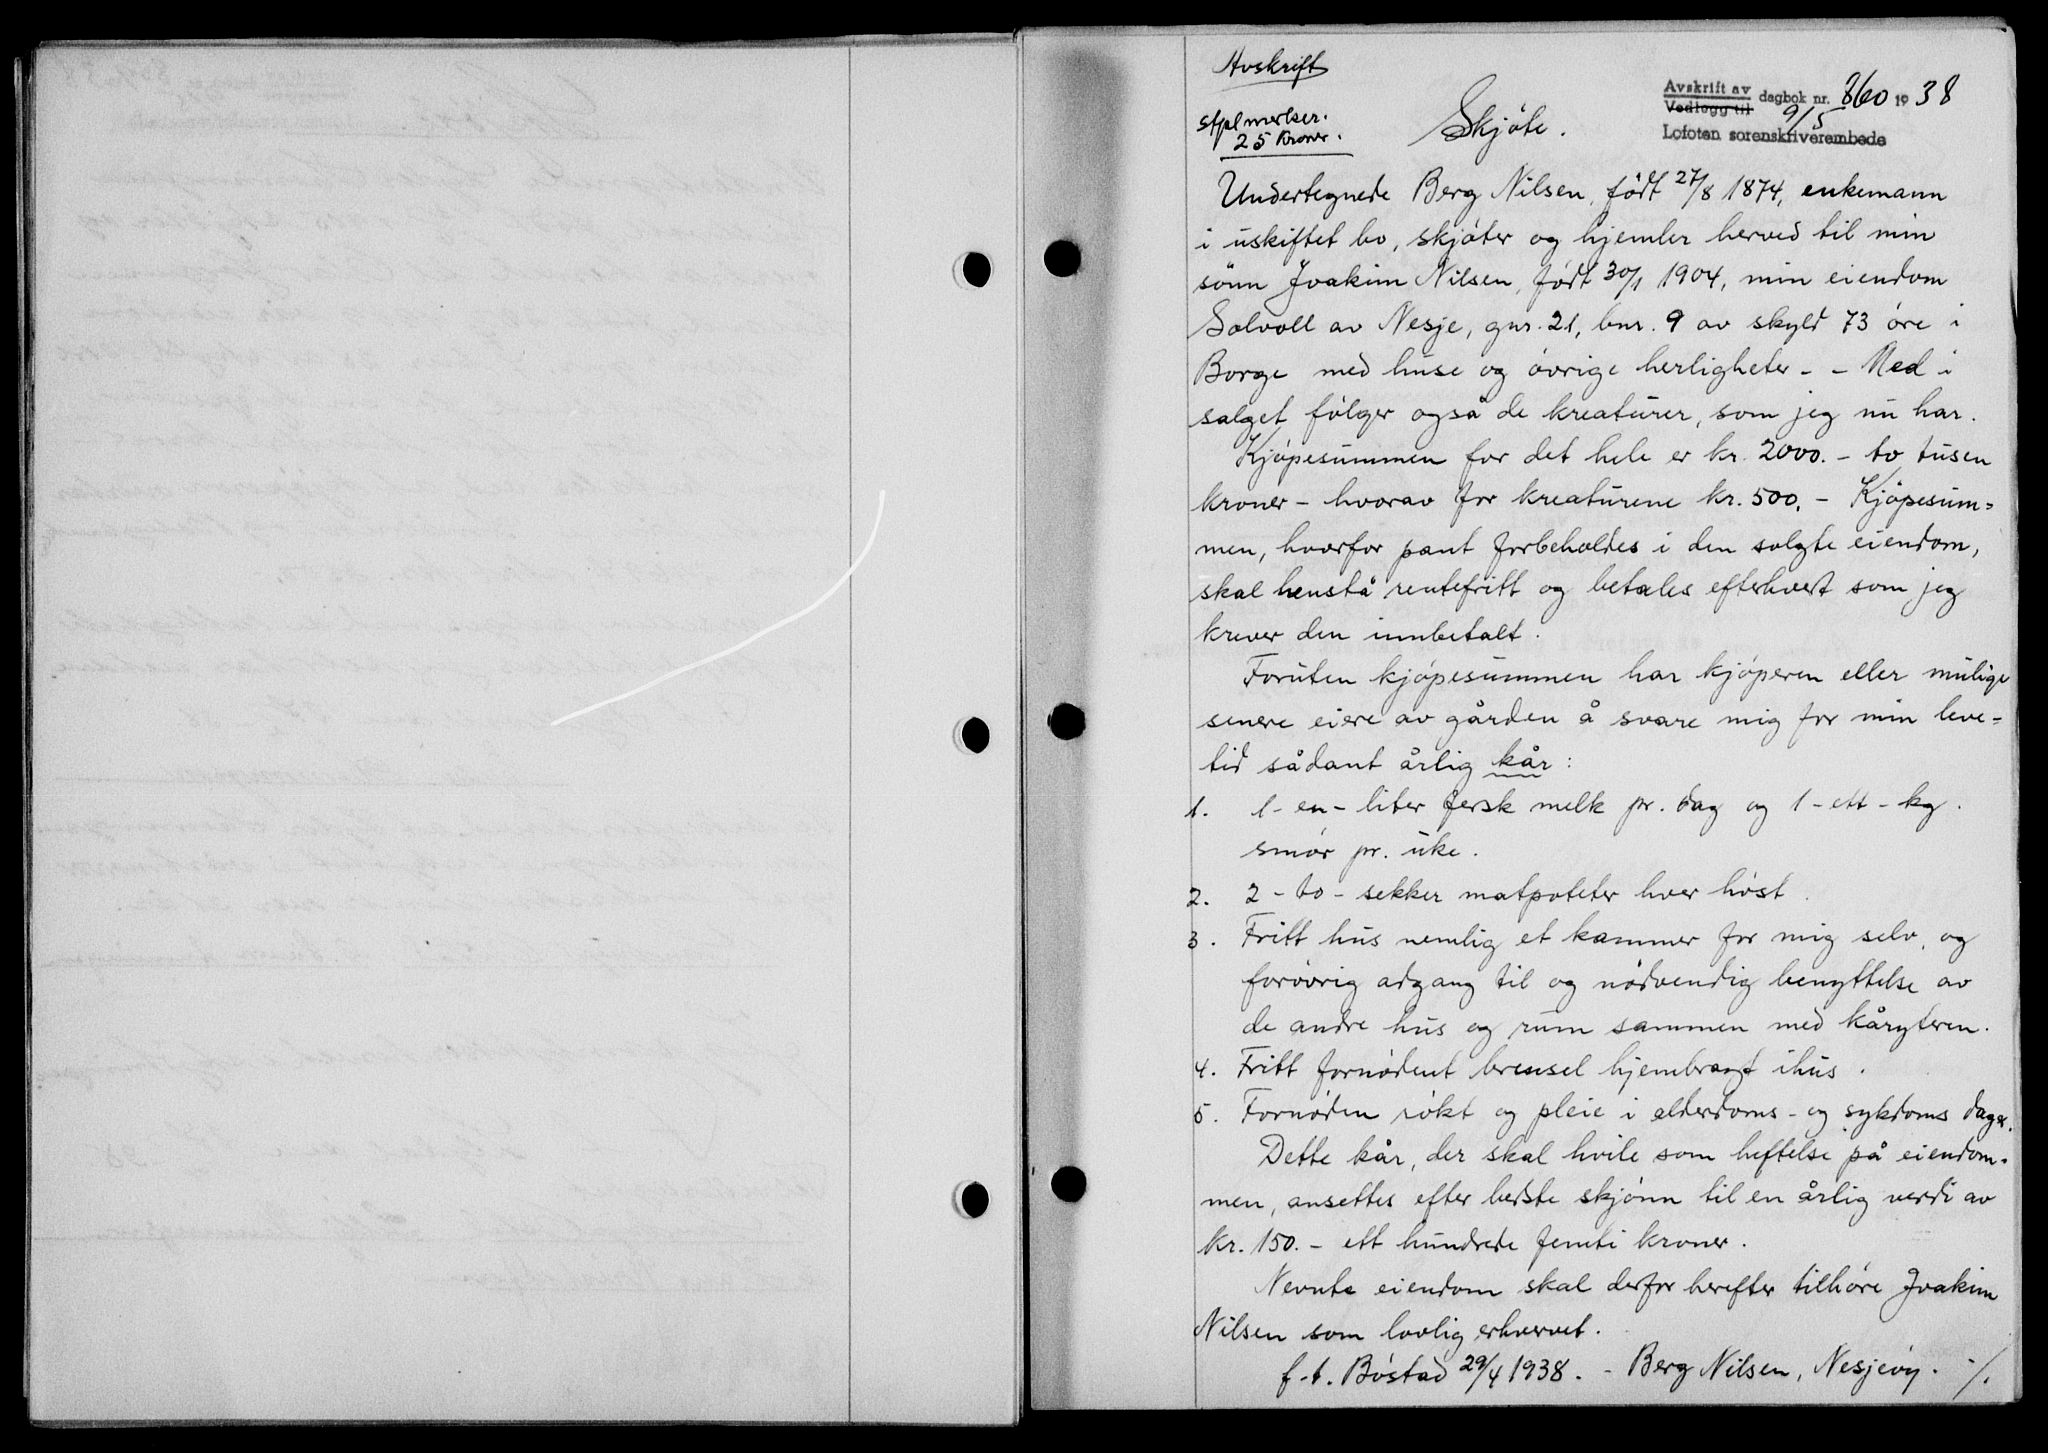 Avskrift
stplmerker.
25 Kroner.
Skjøte.
Avskrift av
Vedlegg til
dagbok nr. 860 1938
9/5
Lofoten sorenskriverembede
Undertegnede Berg Nilsen, født 27/8 1874, enkemann
i uskiftet bo, skjøter og hjemler herved til min
sønn Joakim Nilsen, født 30/1 1904, min eiendom
Solvoll av Nesje, gnr. 21, bnr. 9 av skyld 73 øre i
Borge med huse og øvrige herligheter. - Med i
salget følger også de kreaturer, som jeg nu har.
Kjøpesummen for det hele er kr. 2000.- to tusen
kroner - hvorav for kreaturene kr. 500.- Kjøpesum=
men, hvorfor pant forbeholdes i den solgte eiendom,
skal henstå rentefritt og betales efterhvert som jeg
krever den innbetalt.
Foruten kjøpesummen har kjøperen eller mulige
senere eiere av gården å svare mig for min leve=
tid sådant årlig kår:
1. 1-en-liter fersk melk pr. dag og 1-ett-kg.
smør pr. uke.
2. 2-to-sekker matpoteter hver høst.
3. Fritt hus nemlig et kammer for mig selv, og
forøvrig adgang til og nødvendig benyttelse av
de andre hus og rum sammen med kåryteren.
4. Fritt fornødent brensel hjembragt ihus.
5. Fornøden røkt og pleie i alderdoms- og sykdoms dager.
Dette kår, der skal hvile som heftelse på eiendom-
men, ansettes efter bedste skjønn til en årlig verdi av
kr. 150.- ett hundrede femti kroner.
Nevnte eiendom skal derfor herefter tilhøre Joakim
Nilsen som lovlig erhvervet.
f.t. Bøstad 29/4 1938. - Berg Nilsen, Nesjeøy. ./.